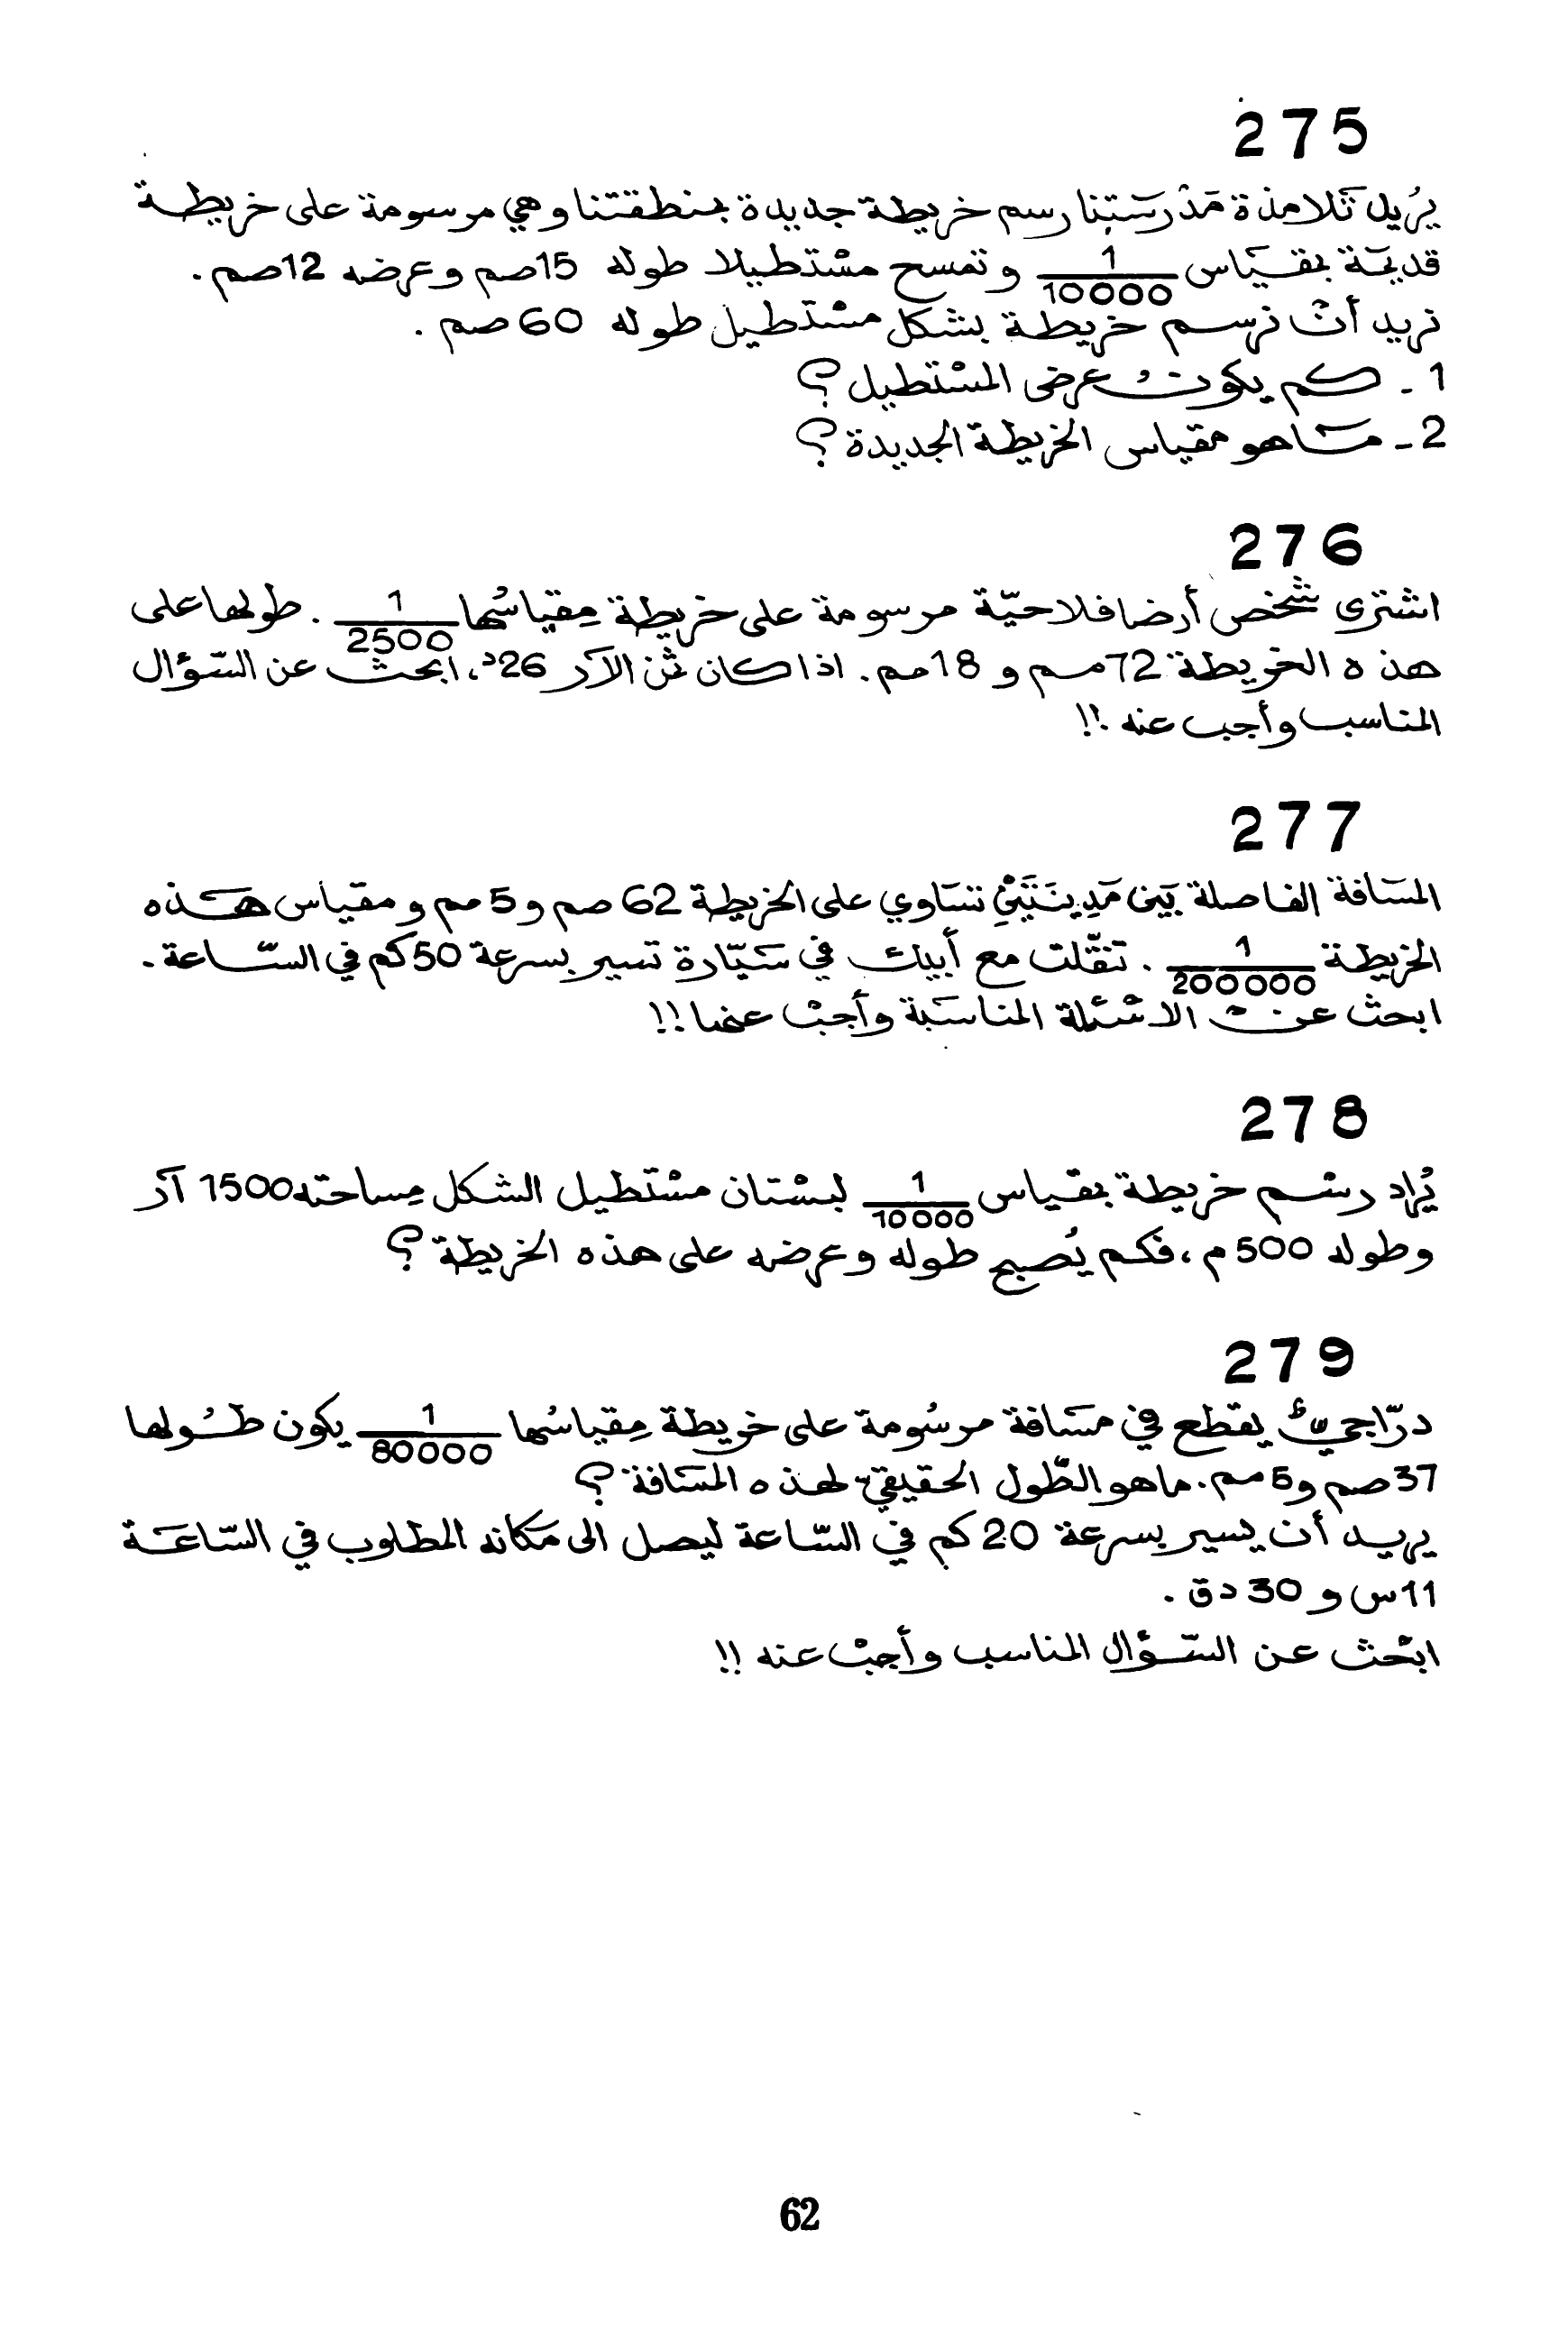 275
يُريد تَلامذة مَدْرسَتِنا رسم خريطة جديدة بمنطقتنا وهي مرسومة على خريطة
قديمَة بمقيَاس 1/10000 وتمسح مسْتطيلا طوله 15صم وعرضه 12صم.
نريد أنْ نرسم خريطة بشكل مسْتطيل طوله 60صم.
1 ـ كم يكونُ عرض المسْتطيل؟
2 ـ مَا هو مقياس الخريطة الجديدة؟
276
اشترى شخْص أرضا فلاحيّة مرسومة على خريطة مِقياسُها 1/2500. طولها على
هذه الخريطة 72مم و 18مم. اذا كان ثمن الآر 26د، ابحث عن السّؤال
المناسب وأجب عنه !!
277
المسَافة الفاصلة بَين مَدِينَتَيْنِ تسَاوي على الخريطة 62 صم و5 مم ومقياس هَذه
الخريطة 1/200000. تنقّلت مع أبيك في سَيّارة تسير بسرعة 50كم في السّاعة.
ابحث عن الاسْئلة المناسَبة وأجبْ عنها !!
278
يُراد رسْم خريطة بمقياس 1/10000 لبسْتان مسْتطيل الشكل مِساحته 1500 آر
وطوله 500 م، فكم يُصبح طوله وعرضه على هذه الخريطة؟
279
درّاجيّ يقطع في مسَافة مرسُومة على خريطة مِقياسُها 1/80000 يكون طُولها
37صم و5مم. ماهو الطّول الحقيقيّ لهذه المسَافة؟
يريد أن يسير بسرعة 20 كم في السّاعة ليصل الى مَكانه المطلوب في السّاعَة
11س و 30دق.
ابْحث عن السّؤال المناسب وأجبْ عنه !!
62